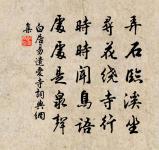 弄石臨溪坐
尋花繞寺行
時時聞鳥語
處處是泉聲
白居易遺愛寺詞典網
集